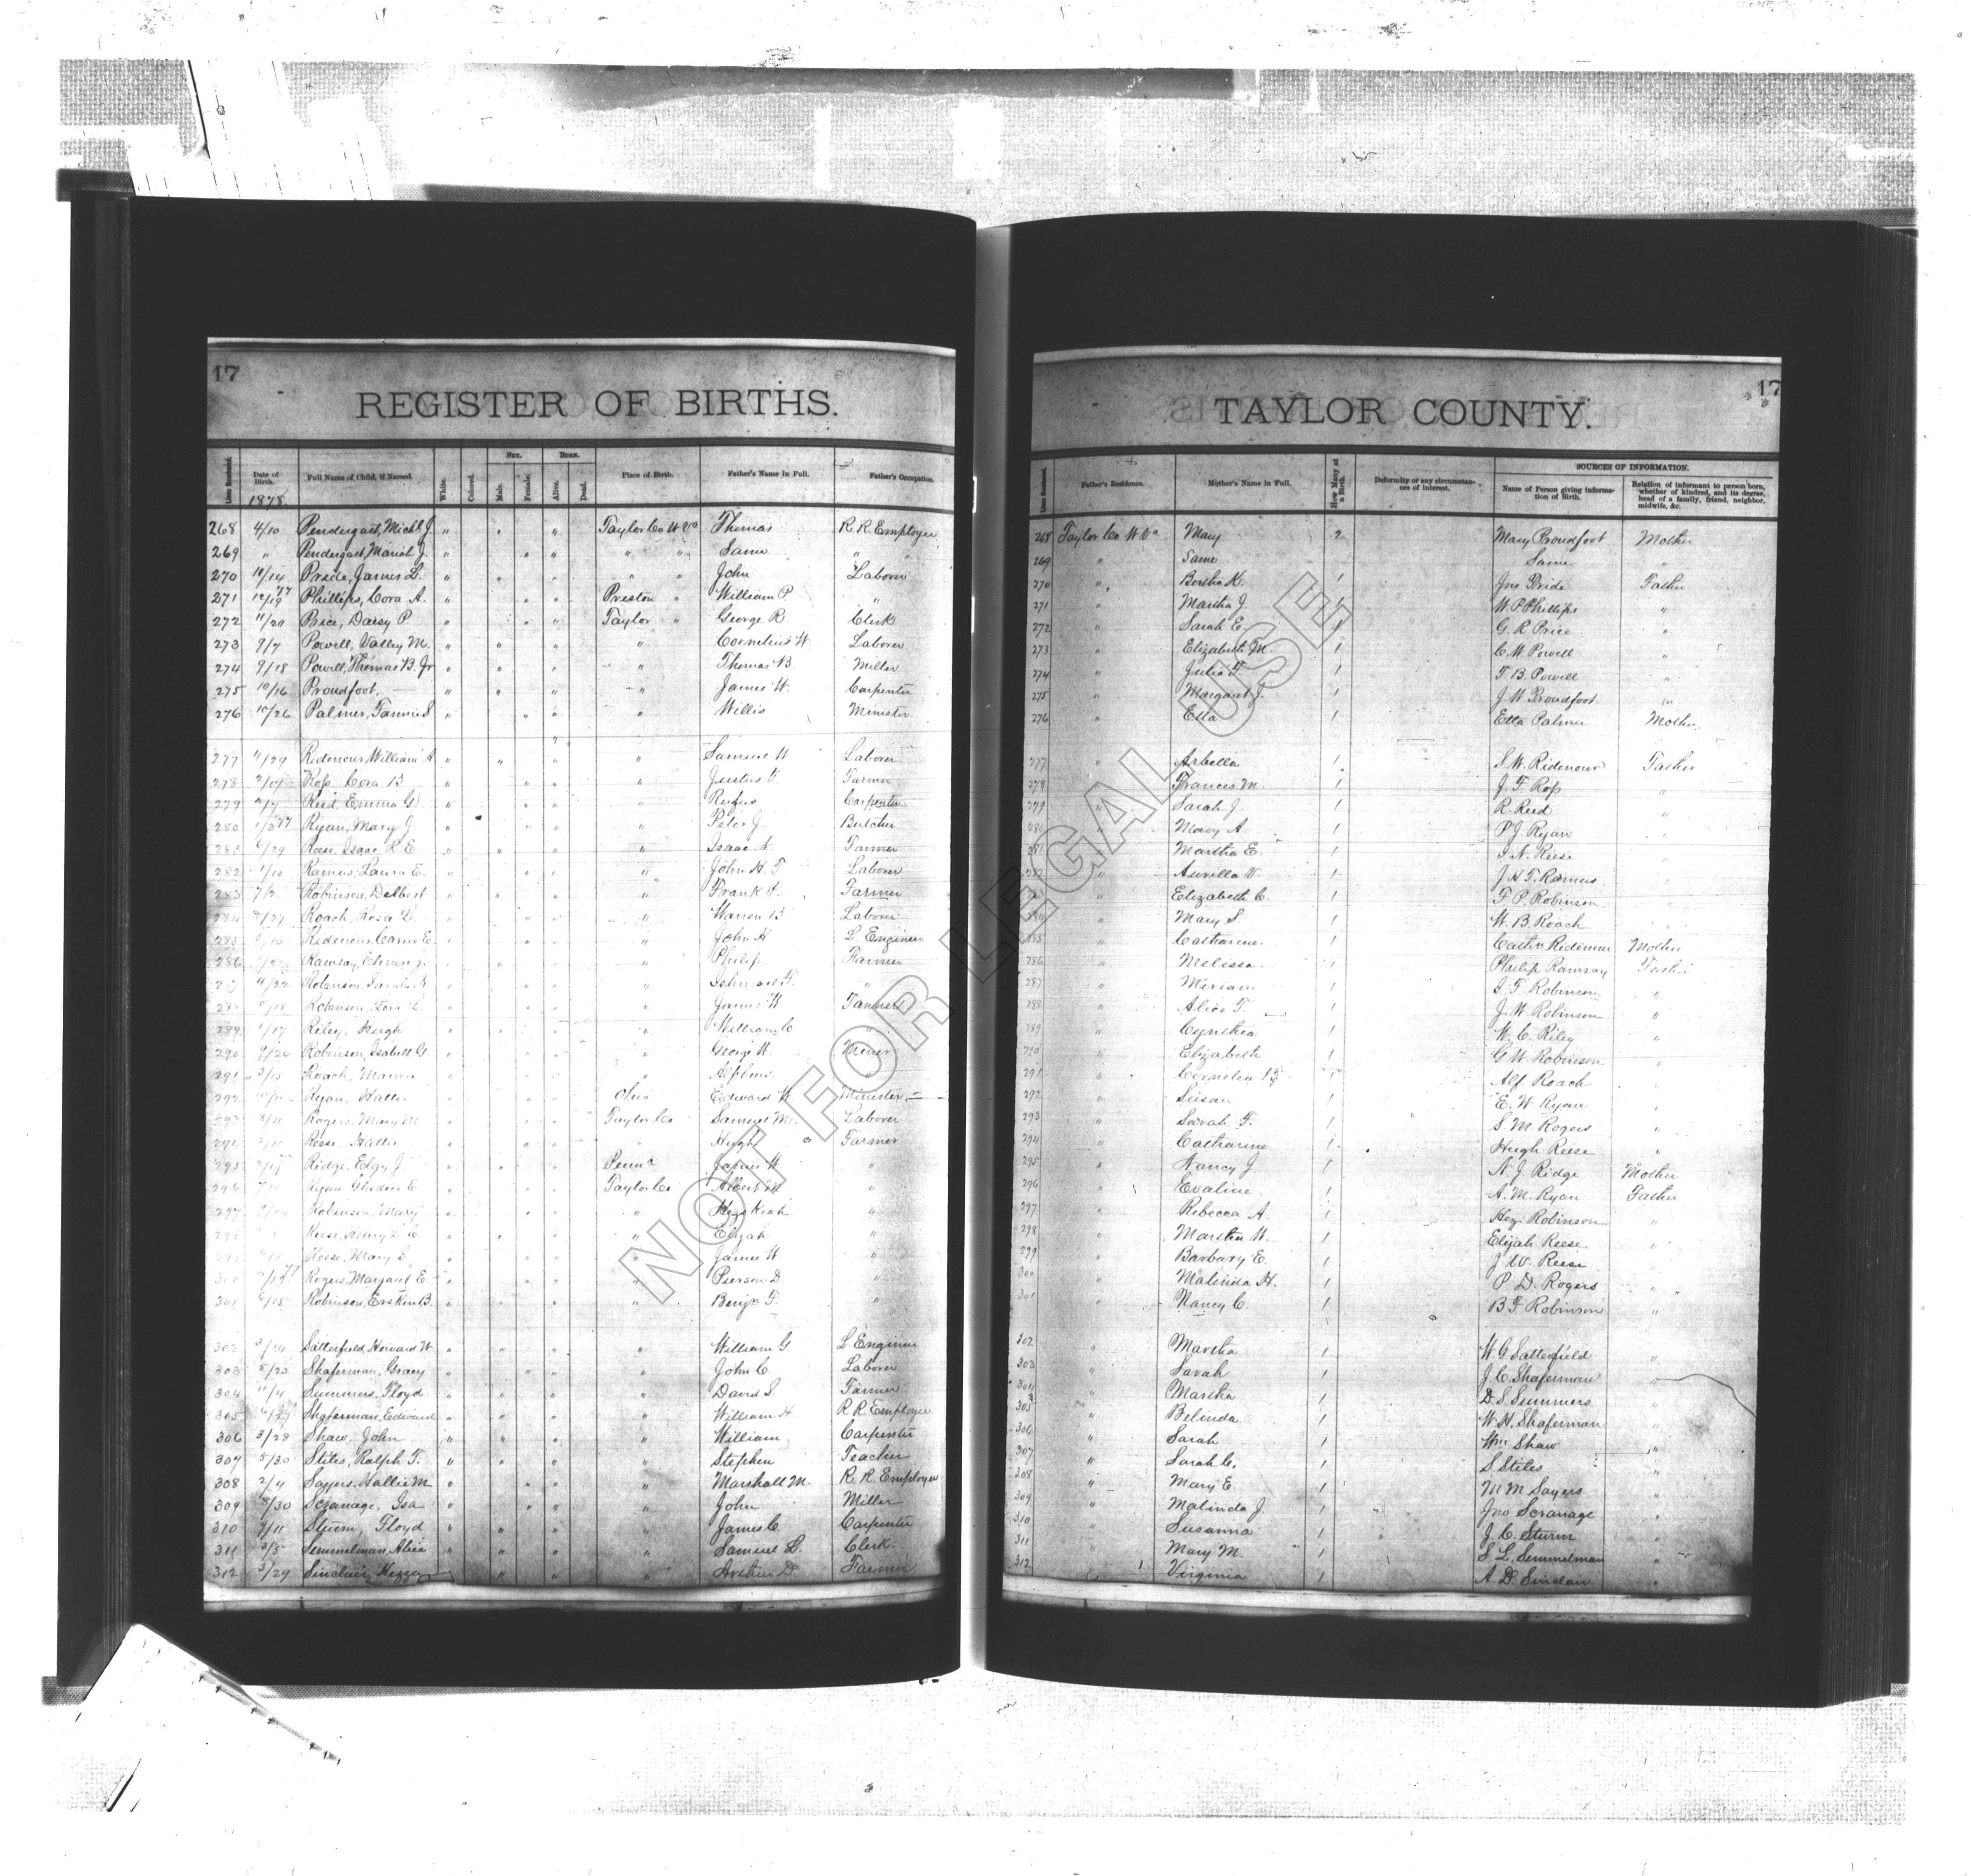 17
REGISTER OF BIRTHS.
Lines Numbered. Date of Birth. Full Name of Child, if Named. White. Colored. Sex. Male. Female. Born. Alive. Dead. Place of Birth. Father's Name in Full. Father's Occupation.
1878
268 4/10 Pendergast, Michl J. " " " Taylor Co W Va Thomas R. R. Employee
269 " Pendergast, Mariah J. " " " " " Same " "
270 10/14 Pride, James L. " " " " " John Laborer
271 12/19 77 Phillips, Cora A. " " " Preston " William P "
272 11/20 Price, Daisy P " " " Taylor " George R Clerk
273 9/7 Powell, Valley M. " " " " Cornelius W Laborer
274 9/18 Powell, Thomas B. Jr " " " " Thomas B Miller
275 10/16 Proudfoot, — " " " " James W. Carpenter
276 10/26 Palmer, Fannie S " " " " Willis Minister
277 4/29 Ridenour, William A " " " " Samuel W Laborer
278 Ross, Cora B " " " " Justus F Farmer
279 Reed, Emma G. " " " " Rufus Carpenter
280 Ryan, Mary J " " " " Peter J. Butcher
281 6/29 Reese, Isaac R. E " " " " Isaac N. Farmer
282 1/10 Ramus, Laura E. " " " " John H. F Laborer
283 7/2 Robinson, Delbert " " " " Frank P. Farmer
284 Roach, Rosa L. " " " " Warren B Laborer
285 Ridenour, Carrie E. " " " " John H L. Engineer
286 Ramsay, J. " " " " Philip Farmer
4/22 Robinson, " " " " F. "
Robinson, L. " " " " James W Farmer
289 1/17 Riley, Hugh " " " " William C "
290 9/26 Robinson, Isabell G " " " " George W Miner
291 3/15 Roach, " " " " Alpheus "
292 Ryan, Hallie " " " Ohio Edward W Minister
Rogers, Mary M " " " Taylor Co Samuel M. Laborer
Reese, Hallie " " " " Hugh Farmer
295 Ridge, Elzy J. " " " Penna James W "
296 Ryan, E " " " Taylor Co Albert M "
297 Robinson, Mary " " " " Hezekiah "
Reese, Henry " " " " Elijah "
Reese, Mary S " " " " James W "
Rogers, Margaret E " " " " Pierson D "
301 6/15 Robinson, Erskin B. " " " " Benj. F. "
302 Satterfield, Howard W " " " " William G L. Engineer
303 5/22 Shaferman, Gracy " " " " John C Laborer
304 11/4 Summers, Floyd " " " " David S Farmer
305 Shaferman, Edward " " " " William H R R Employee
306 3/28 Shaw, John " " " " William Carpenter
307 5/30 Stiles, Ralph F. " " " " Stephen Teacher
308 2/4 Sayers, Hallie M " " " " Marshall M. R. R. Employee
309 8/30 Scranage, Isa " " " " John Miller
310 Sturm, Floyd " " " " James C. Carpenter
311 3/5 Semmelman, Alice " " " " Samuel L. Clerk
312 3/29 Sinclair, " " " " Arthur D. Farmer
17
TAYLOR COUNTY.
Lines Numbered. Father's Residence. Mother's Name in Full. How Many at a Birth. Deformity or any circumstances of interest. SOURCES OF INFORMATION. Name of Person giving information of Birth. Relation of informant to person born, whether of kindred, and its degree, head of a family, friend, neighbor, midwife, &c.
268 Taylor Co W Va Mary 2 Mary Proudfoot Mother
269 " Same Same "
270 " Bertha K. 1 Jno Pride Father
271 " Martha J. 1 W. P. Phillips "
272 " Sarah E. 1 G. R Price "
273 " Elizabeth M. 1 C. W. Powell "
274 " Julia F. 1 T. B. Powell "
275 " Margaret J. 1 J. W Proudfoot "
276 " Etta 1 Etta Palmer Mother
277 " Arbella 1 S. W. Ridenour Father
278 " Frances M. 1 J. F. Ross "
279 " Sarah J 1 R. Reed "
280 " Mary A. 1 P. J. Ryan "
281 " Martha E. 1 I. N. Reese "
282 " Aurilla V. 1 J. H. F. Ramus "
283 " Elizabeth C. 1 F. P. Robinson "
284 " Mary S. 1 W. B. Roach "
285 " Catharine 1 Cathr. Ridenour Mother
286 " Melissa 1 Philip Ramsay Father
287 " Miriam 1 I. F. Robinson "
288 " Alice T. 1 J. W. Robinson "
289 " Cynthia 1 W. C. Riley "
290 " Elizabeth 1 G. W. Robinson "
291 " Cornelia B 1 Alf Roach "
292 " Susan 1 E. W. Ryan "
293 " Sarah F. 1 S. M. Rogers "
294 " Catharine 1 Hugh Reese "
295 " Nancy J 1 N. J Ridge Mother
296 " Evaline 1 A. M. Ryan Father
297 " Rebecca A. 1 Hez. Robinson "
298 " Martha W. 1 Elijah Reese "
299 " Barbary E. 1 J. W. Reese "
300 " Malinda H. 1 P. D. Rogers "
301 " Nancy C. 1 B. F. Robinson "
302 " Martha 1 W. G. Satterfield "
303 " Sarah 1 J. C. Shaferman "
304 " Martha 1 D. S. Summers "
305 " Belinda 1 W. H. Shaferman "
306 " Sarah 1 Wm Shaw "
307 " Sarah C. 1 S Stiles "
308 " Mary E. 1 M M Sayers "
309 " Malinda J. 1 Jno Scranage "
310 " Susanna 1 J. C. Sturm "
311 " Mary M. 1 S L. Semmelman "
312 " Virginia 1 A. D. Sinclair "
NOT FOR LEGAL USE